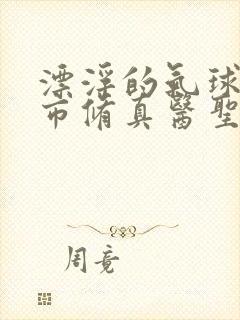 漂淫的氣球
市脩真醫聖
周竟